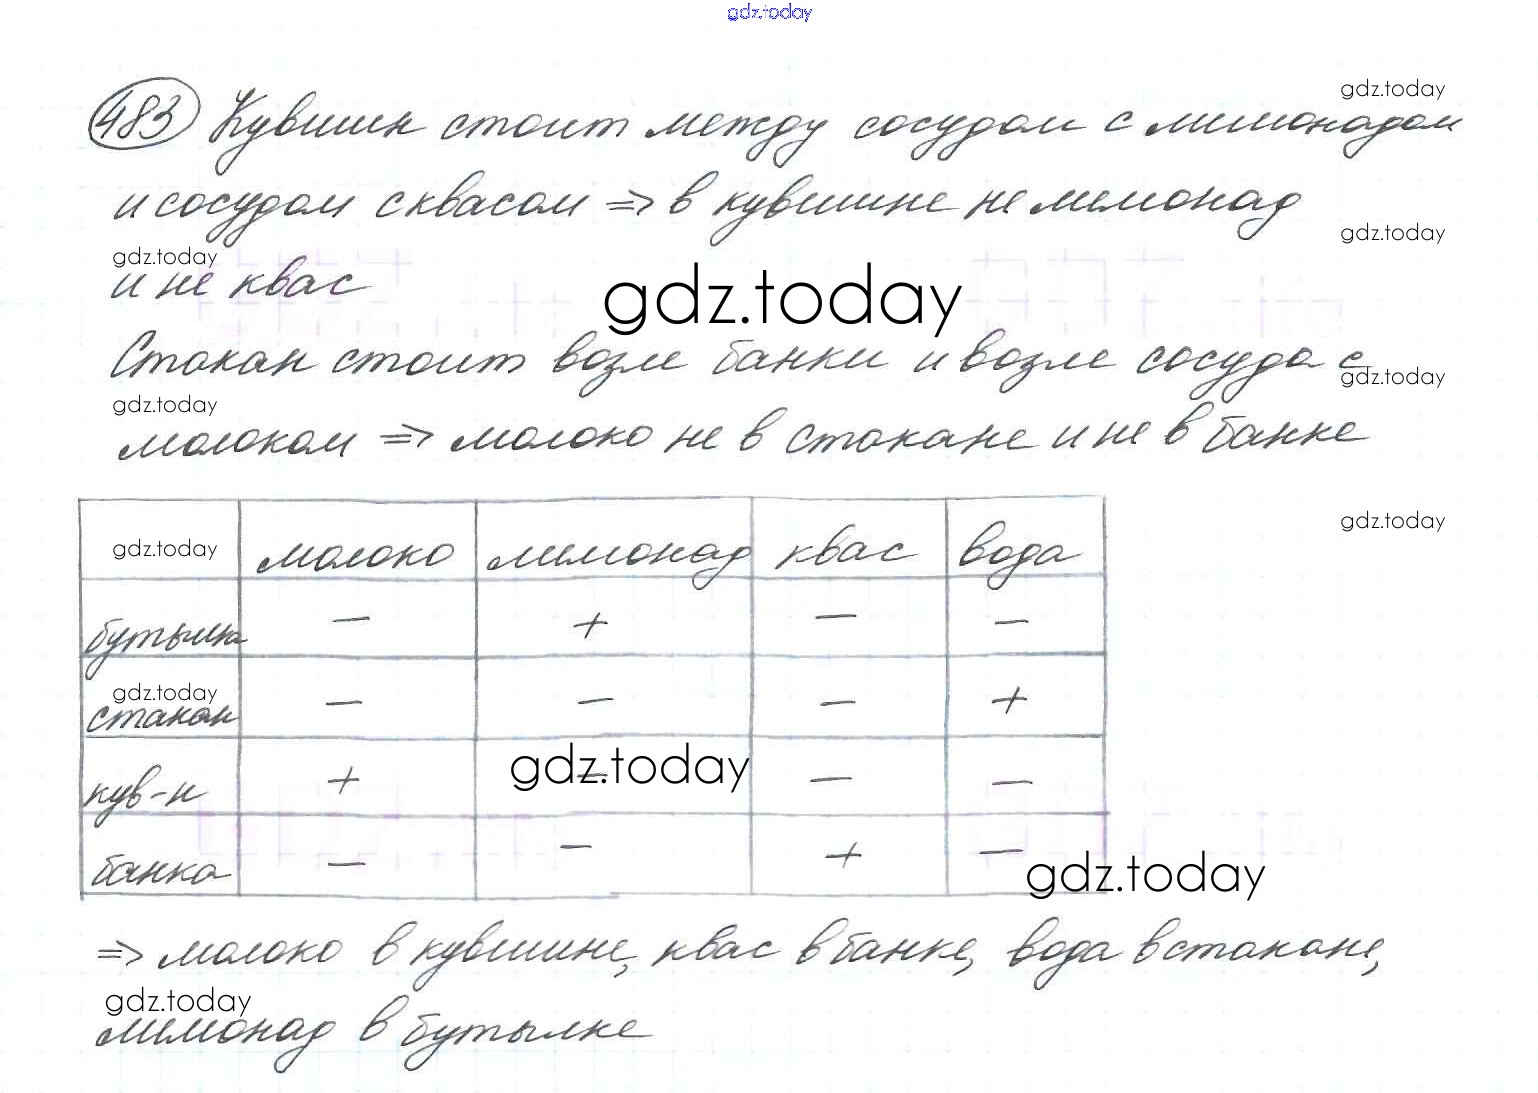 gdz.today
483 Кувшин стоит между сосудом с лимонадом
gdz.today
и сосудом с квасом => в кувшине не лимонад
gdz.today
gdz.today
и не квас
gdz.today
Стакан стоит возле банки и возле сосуда с
gdz.today
gdz.today
молоком => молоко не в стакане и не в банке
gdz.today
gdz.today молоко лимонад квас вода
бутылка — + — —
gdz.today
стакан — — — +
gdz.today
кув-н + — — —
банка — — + —
gdz.today
=> молоко в кувшине, квас в банке, вода в стакане,
gdz.today
лимонад в бутылке